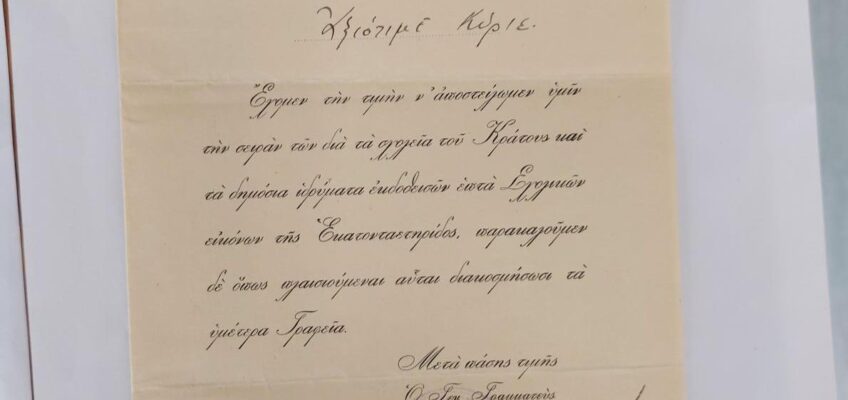 Ἀξιότιμε Κύριε.
Ἔχομεν τὴν τιμὴν ν' ἀποστείλωμεν ὑμῖν
τὴν σειρὰν τῶν διὰ τὰ σχολεῖα τοῦ Κράτους καὶ
τὰ δημόσια ἱδρύματα ἐκδοθεισῶν ἑπτὰ Σχολικῶν
εἰκόνων τῆς Ἑκατονταετηρίδος, παρακαλοῦμεν
δὲ ὅπως πλαισιούμεναι αὗται διακοσμήσωσι τὰ
ὑμέτερα Γραφεῖα.
Μετὰ πάσης τιμῆς
Ὁ Γεν. Γραμματεὺς